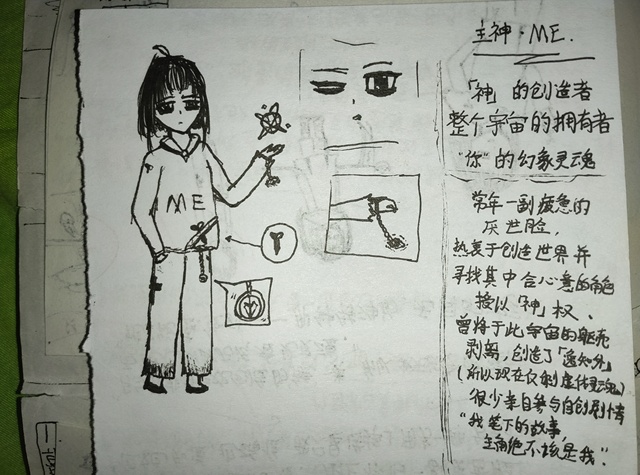 主神·ME.
「神」的创造者
整个宇宙的拥有者
"你"的幻象灵魂
常年一副疲惫的
厌世脸，
热衷于创造世界并
寻找其中合心意的角色
授以「神」权．
曾将于此宇宙的躯壳
剥离，创造了「
(所以现在仅剩虚体灵魂)
很少亲自参与自创剧情
"我笔下的故事，
主角绝不该是我".
ME